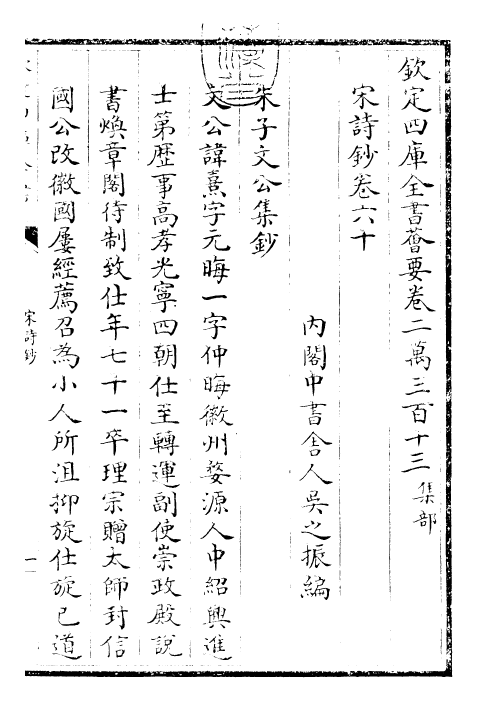 欽定四庫全書薈要卷二萬三百十三 集部
宋詩鈔卷六十
內閣中書舍人吳之振編
朱子文公集鈔
文公諱熹字元晦一字仲晦徽州婺源人中紹興進
士第歷事高孝光寧四朝仕至轉運副使崇政殿說
書煥章閣待制致仕年七十一卒理宗贈太師封信
國公改徽國屢經薦召為小人所沮抑旋仕旋已道
宋詩鈔
一